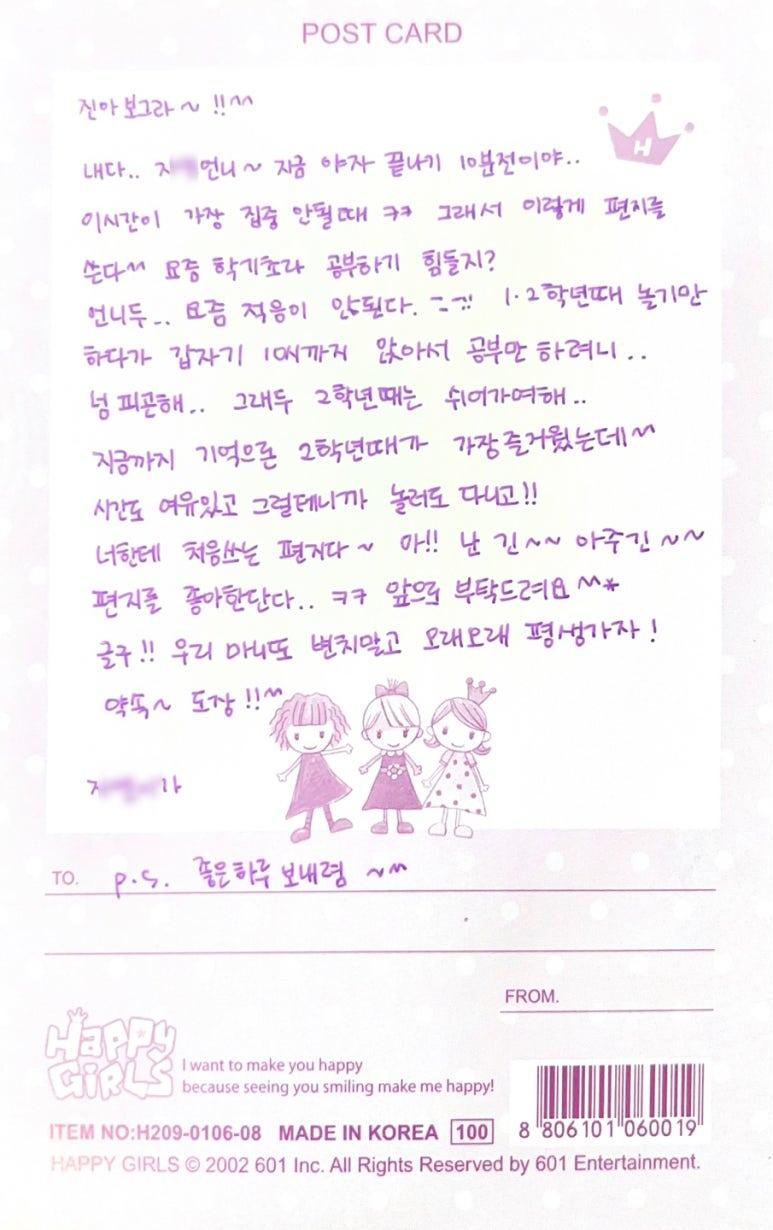 POST CARD
진아보그라~ !!^^
H
내다.. 지 언니~ 지금 야자 끝나기 10분전이야..
이시간이 가장 집중 안될때 ㅋㅋ 그래서 이렇게 편지를
쓴다^^ 요즘 학기초라 공부하기 힘들지?
언니두... 요즘 적응이 안된다. 1·2학년때 놀기만
하다가 갑자기 10시까지 앉아서 공부만 하려니..
넘 피곤해.. 그래두 2학년때는 쉬어가여해..
지금까지 기억으론 2학년때가 가장즐거웠는데^^
시간도 여유있고 그럴테니까 놀러도 다니고!!
너한테 처음쓰는 편지다~ 아!! 난 긴~~ 아주긴~~
편지를 좋아한단다.. ㅋㅋ 앞으로 부탁드려요^^*
글구!! 우리 마니또 변치말고 오래오래 평생가자!
약속~ 도장!!^^
지 가
TO. p.s. 좋은하루 보내렴 ~^^
FROM.
HAPPY GIRLS
I want to make you happy
because seeing you smiling make me happy!
ITEM NO:H209-0106-08 MADE IN KOREA 100
8 806101 060019
HAPPY GIRLS © 2002 601 Inc. All Rights Reserved by 601 Entertainment.